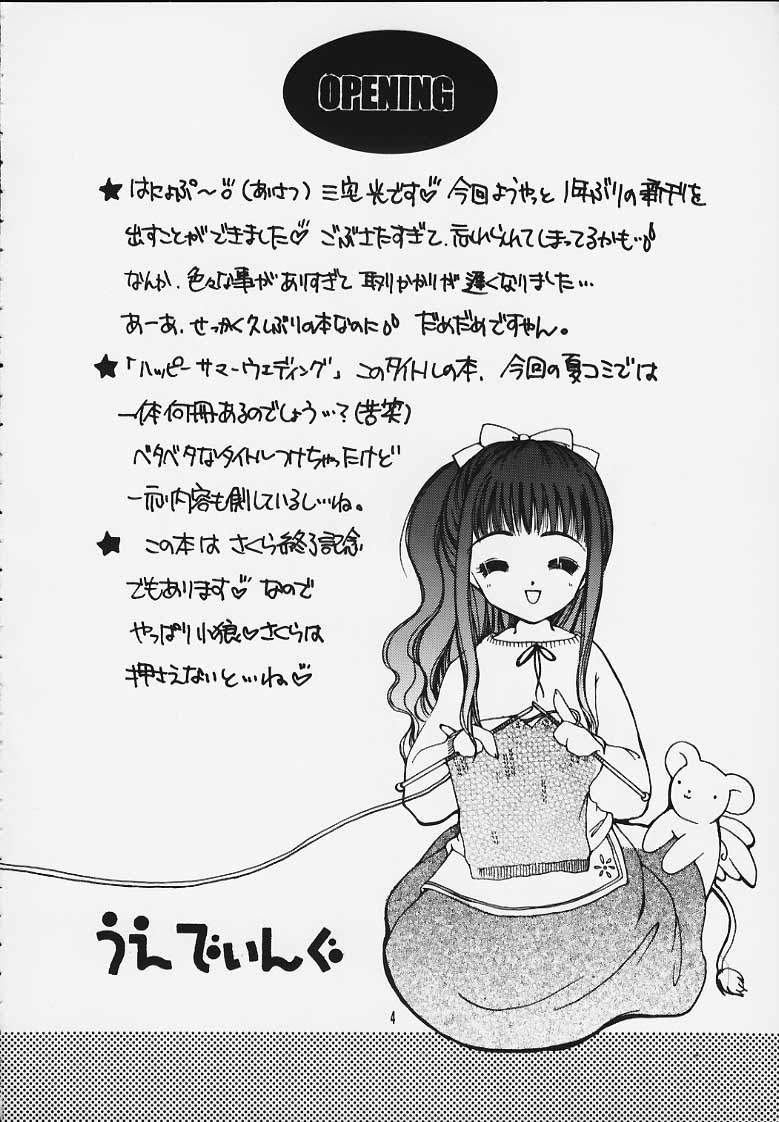 OPENING
★ はにょぷ〜♡(あいさつ)三宅光です♡ 今回ようやっと 1年ぶりの新刊を
出すことができました♡ ごぶさたすぎて、忘れられてしまってるかも…
なんか、色々な事がありすぎて 取りかかりが 遅くなりました…
あーあ、せっかく久しぶりの本なのに だめだめですやん。
★ 「ハッピー サマーウエディング」 このタイトルの本、今回の夏コミでは
一体何冊あるのでしょう…?(苦笑)
ベタベタなタイトルつけちゃったけど
一応内容も側しているし…ね。
★ この本は さくら終了記念
でもあります♡ なので
やっぱり小狼♡さくらは
押さえないと…ね♡
うえでいんぐ
4